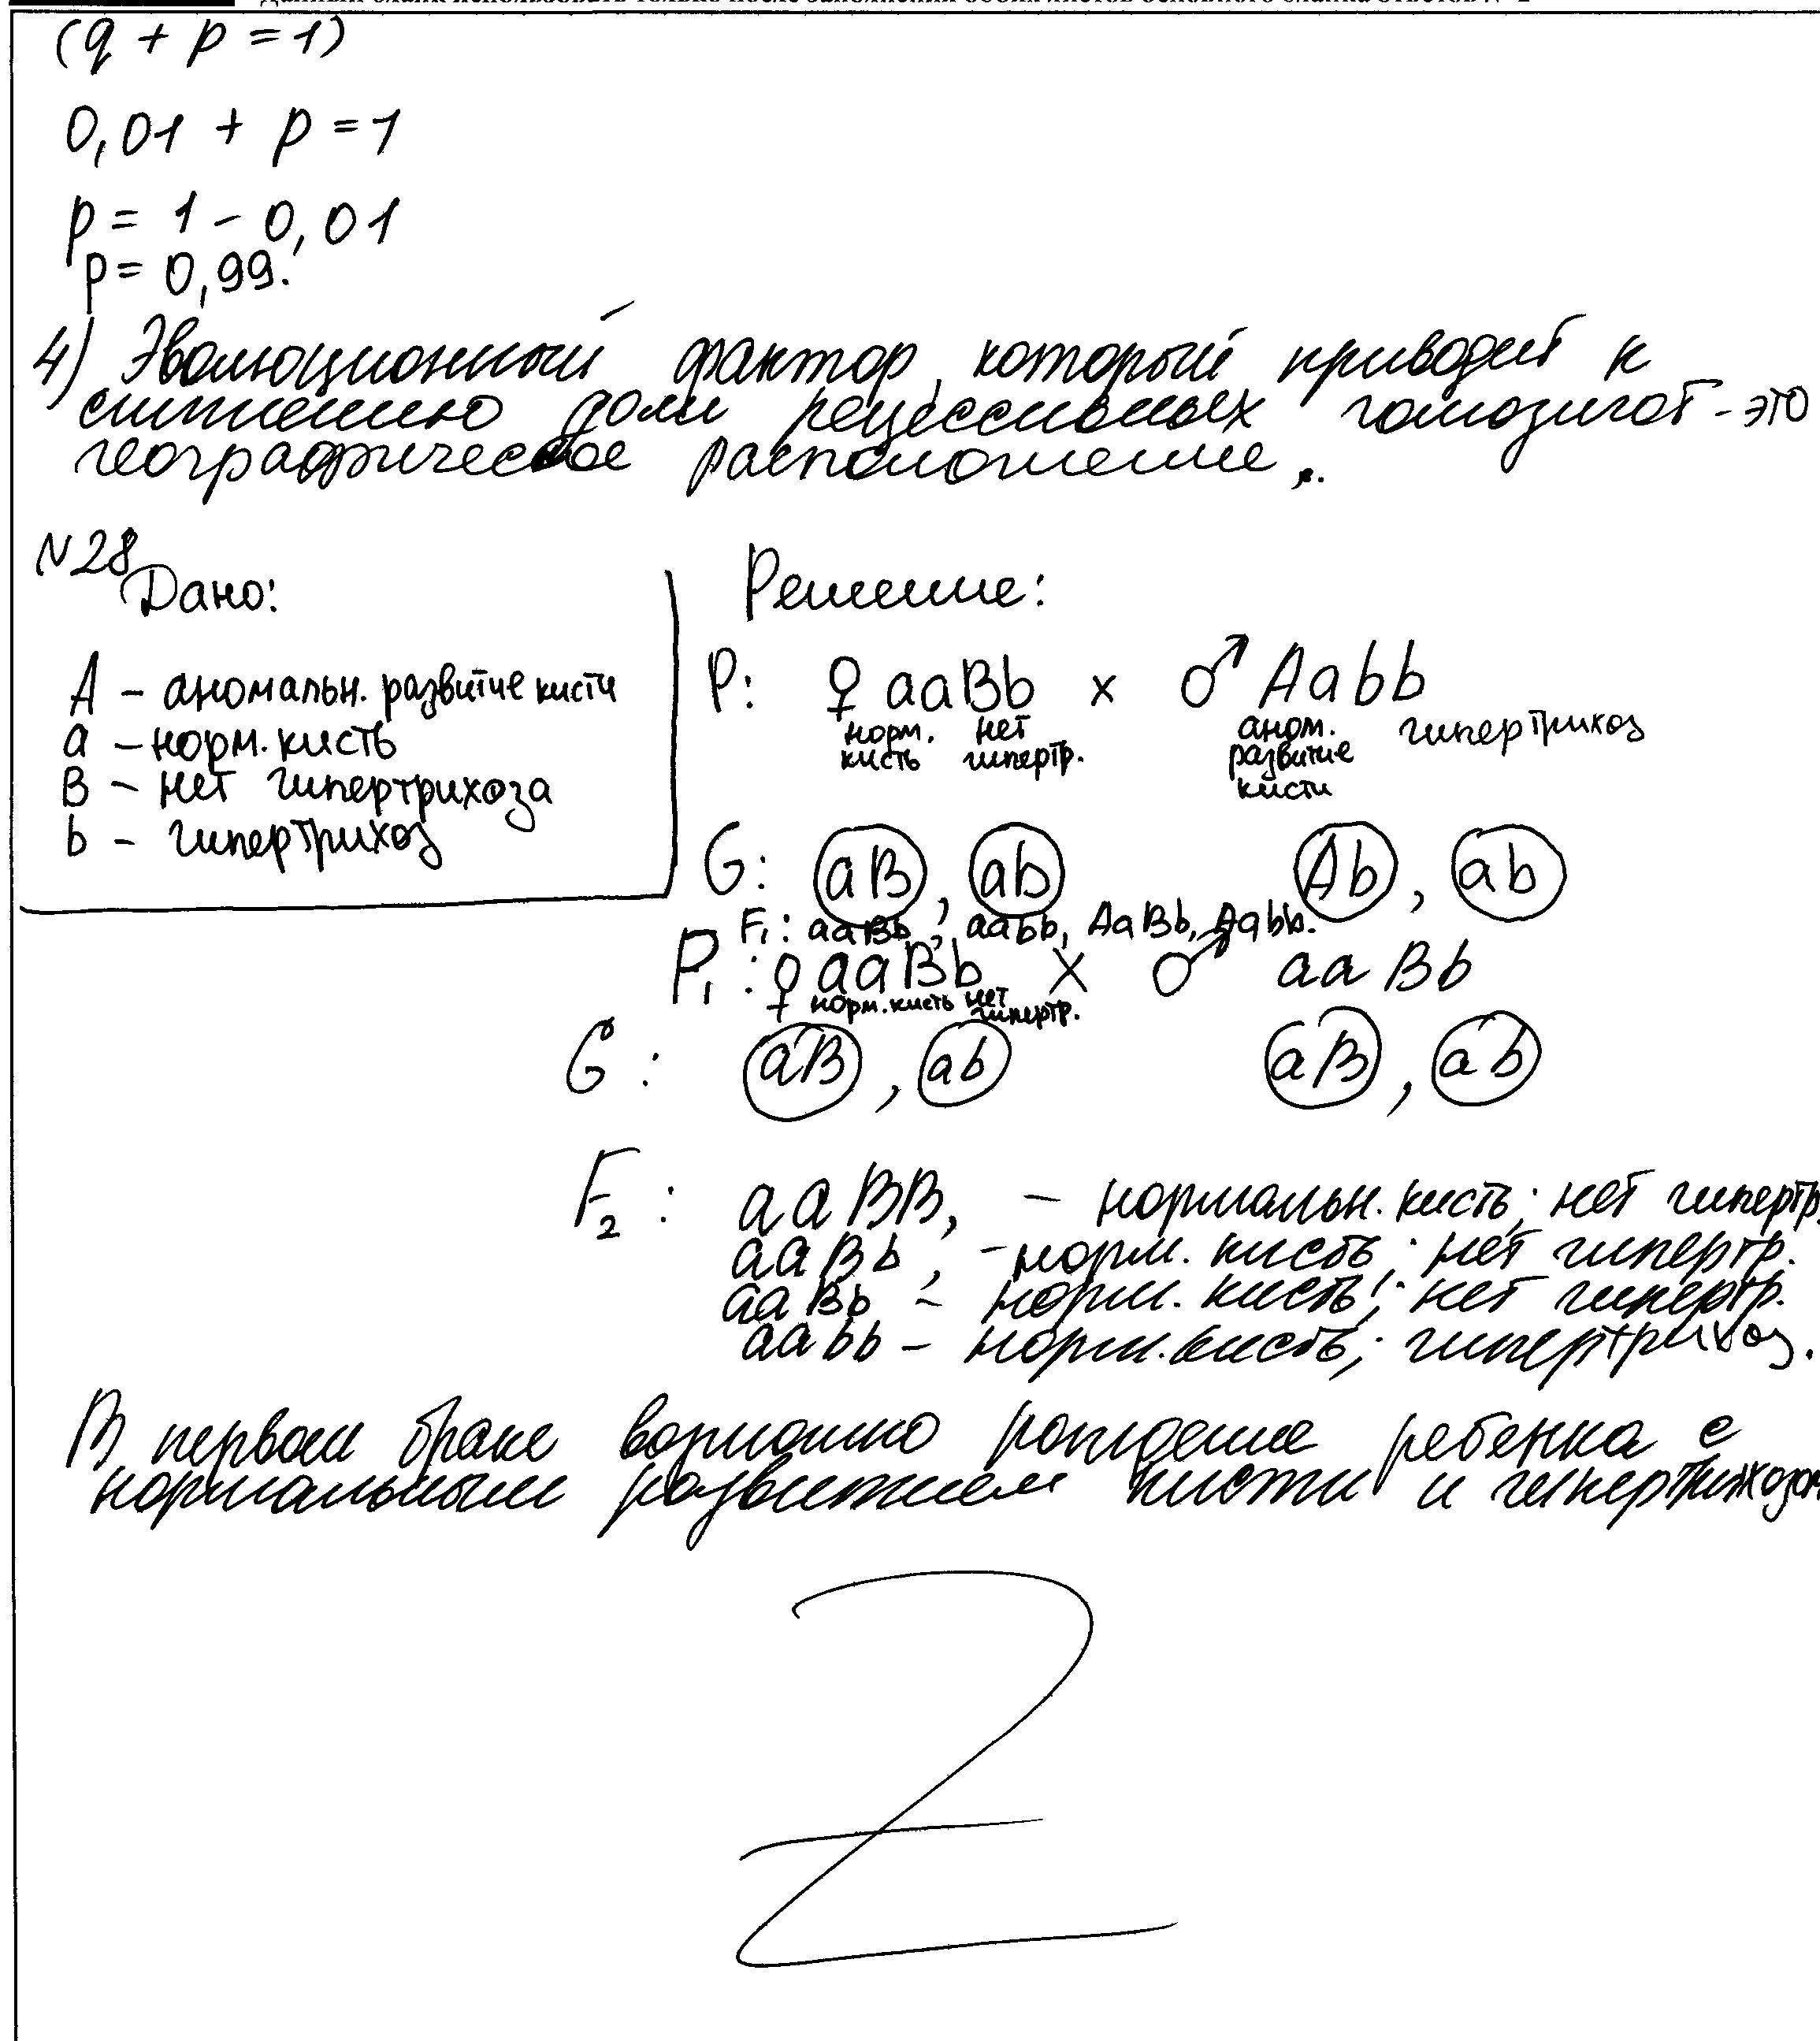 (q + p = 1)
0,01 + p = 1
p = 1 - 0,01
p = 0,99.
4) Эволюционный фактор, который приводит к
снижению доли рецессивных гомозигот - это
географическое расположение.
N28
Дано:
A - аномальн. развитие кисти
a - норм. кисть
B - нет гипертрихоза
b - гипертрихоз
Решение:
P: ♀ aaBb x ♂ Aabb
норм. кисть нет гипертр. аном. развитие кисти гипертрихоз
G: aB, ab Ab, ab
F1: aaBb, aabb, AaBb, Aabb.
P1: ♀ aaBb x ♂ aaBb
норм. кисть нет гипертр.
G: aB, ab aB, ab
F2: aaBB, - нормальн. кисть; нет гипертр.
aaBb, - норм. кисть; нет гипертр.
aaBb - норм. кисть; нет гипертр.
aabb - норм. кисть; гипертрихоз.
В первом браке возможно рождение ребенка с
нормальным развитием кисти и гипертрихозом
Z